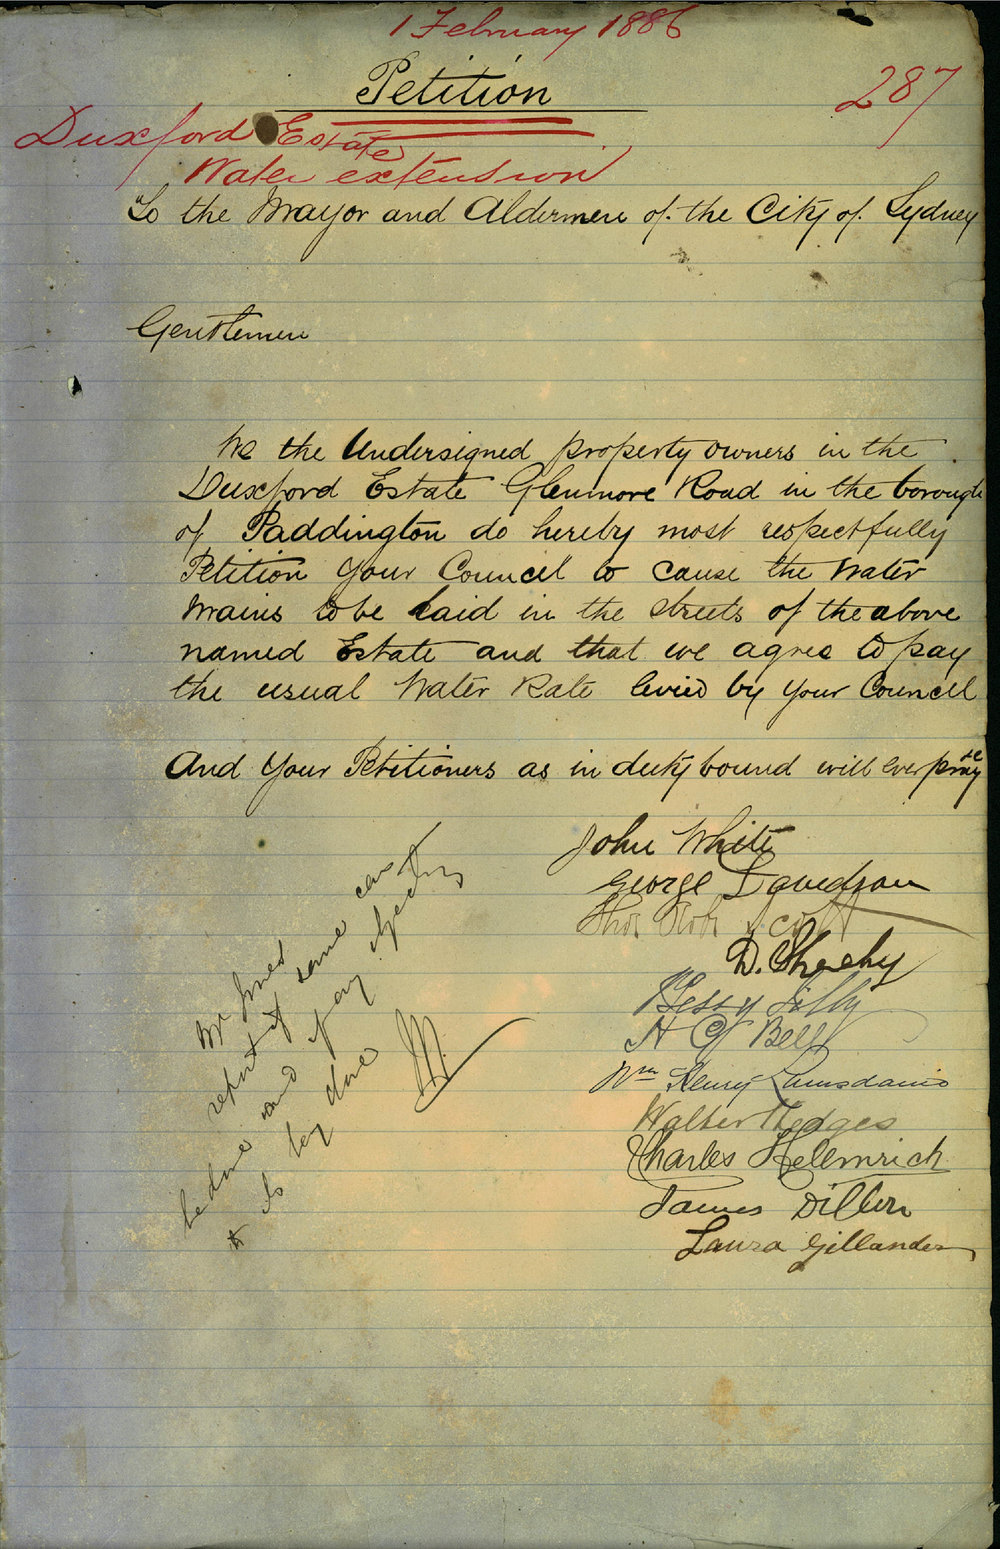 1 February 1886
Petition
287
Duxford Estate
Water extension
To the Mayor and Aldermen of the City of Sydney
Gentlemen
We the Undersigned property owners in the
Duxford Estate Glenmore Road in the borough
of Paddington do hereby most respectfully
Petition Your Council to cause the Water
Mains to be laid in the streets of the above
named Estate and that we agree to pay
the usual Water Rate levied by your Council
And Your Petitioners as in duty bound will ever pray &c
John White
George Davidson
Thos Robt Scott
D. Sheehy
Bessy Lilly
H Bell
Wm Henry Lumsdaine
Walter Hedges
Charles Hellmrich
James Dillon
Laura Gillander
Mr
report if same can
be done and if any objection
to its being done